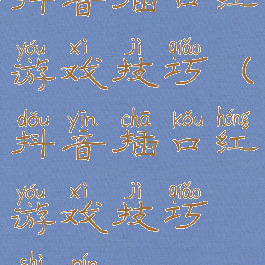 抖音插口红
yóu xì jì qiǎo
游戏技巧（
dǒu yīn chā kǒu hóng
抖音插口红
yóu xì jì qiǎo
游戏技巧